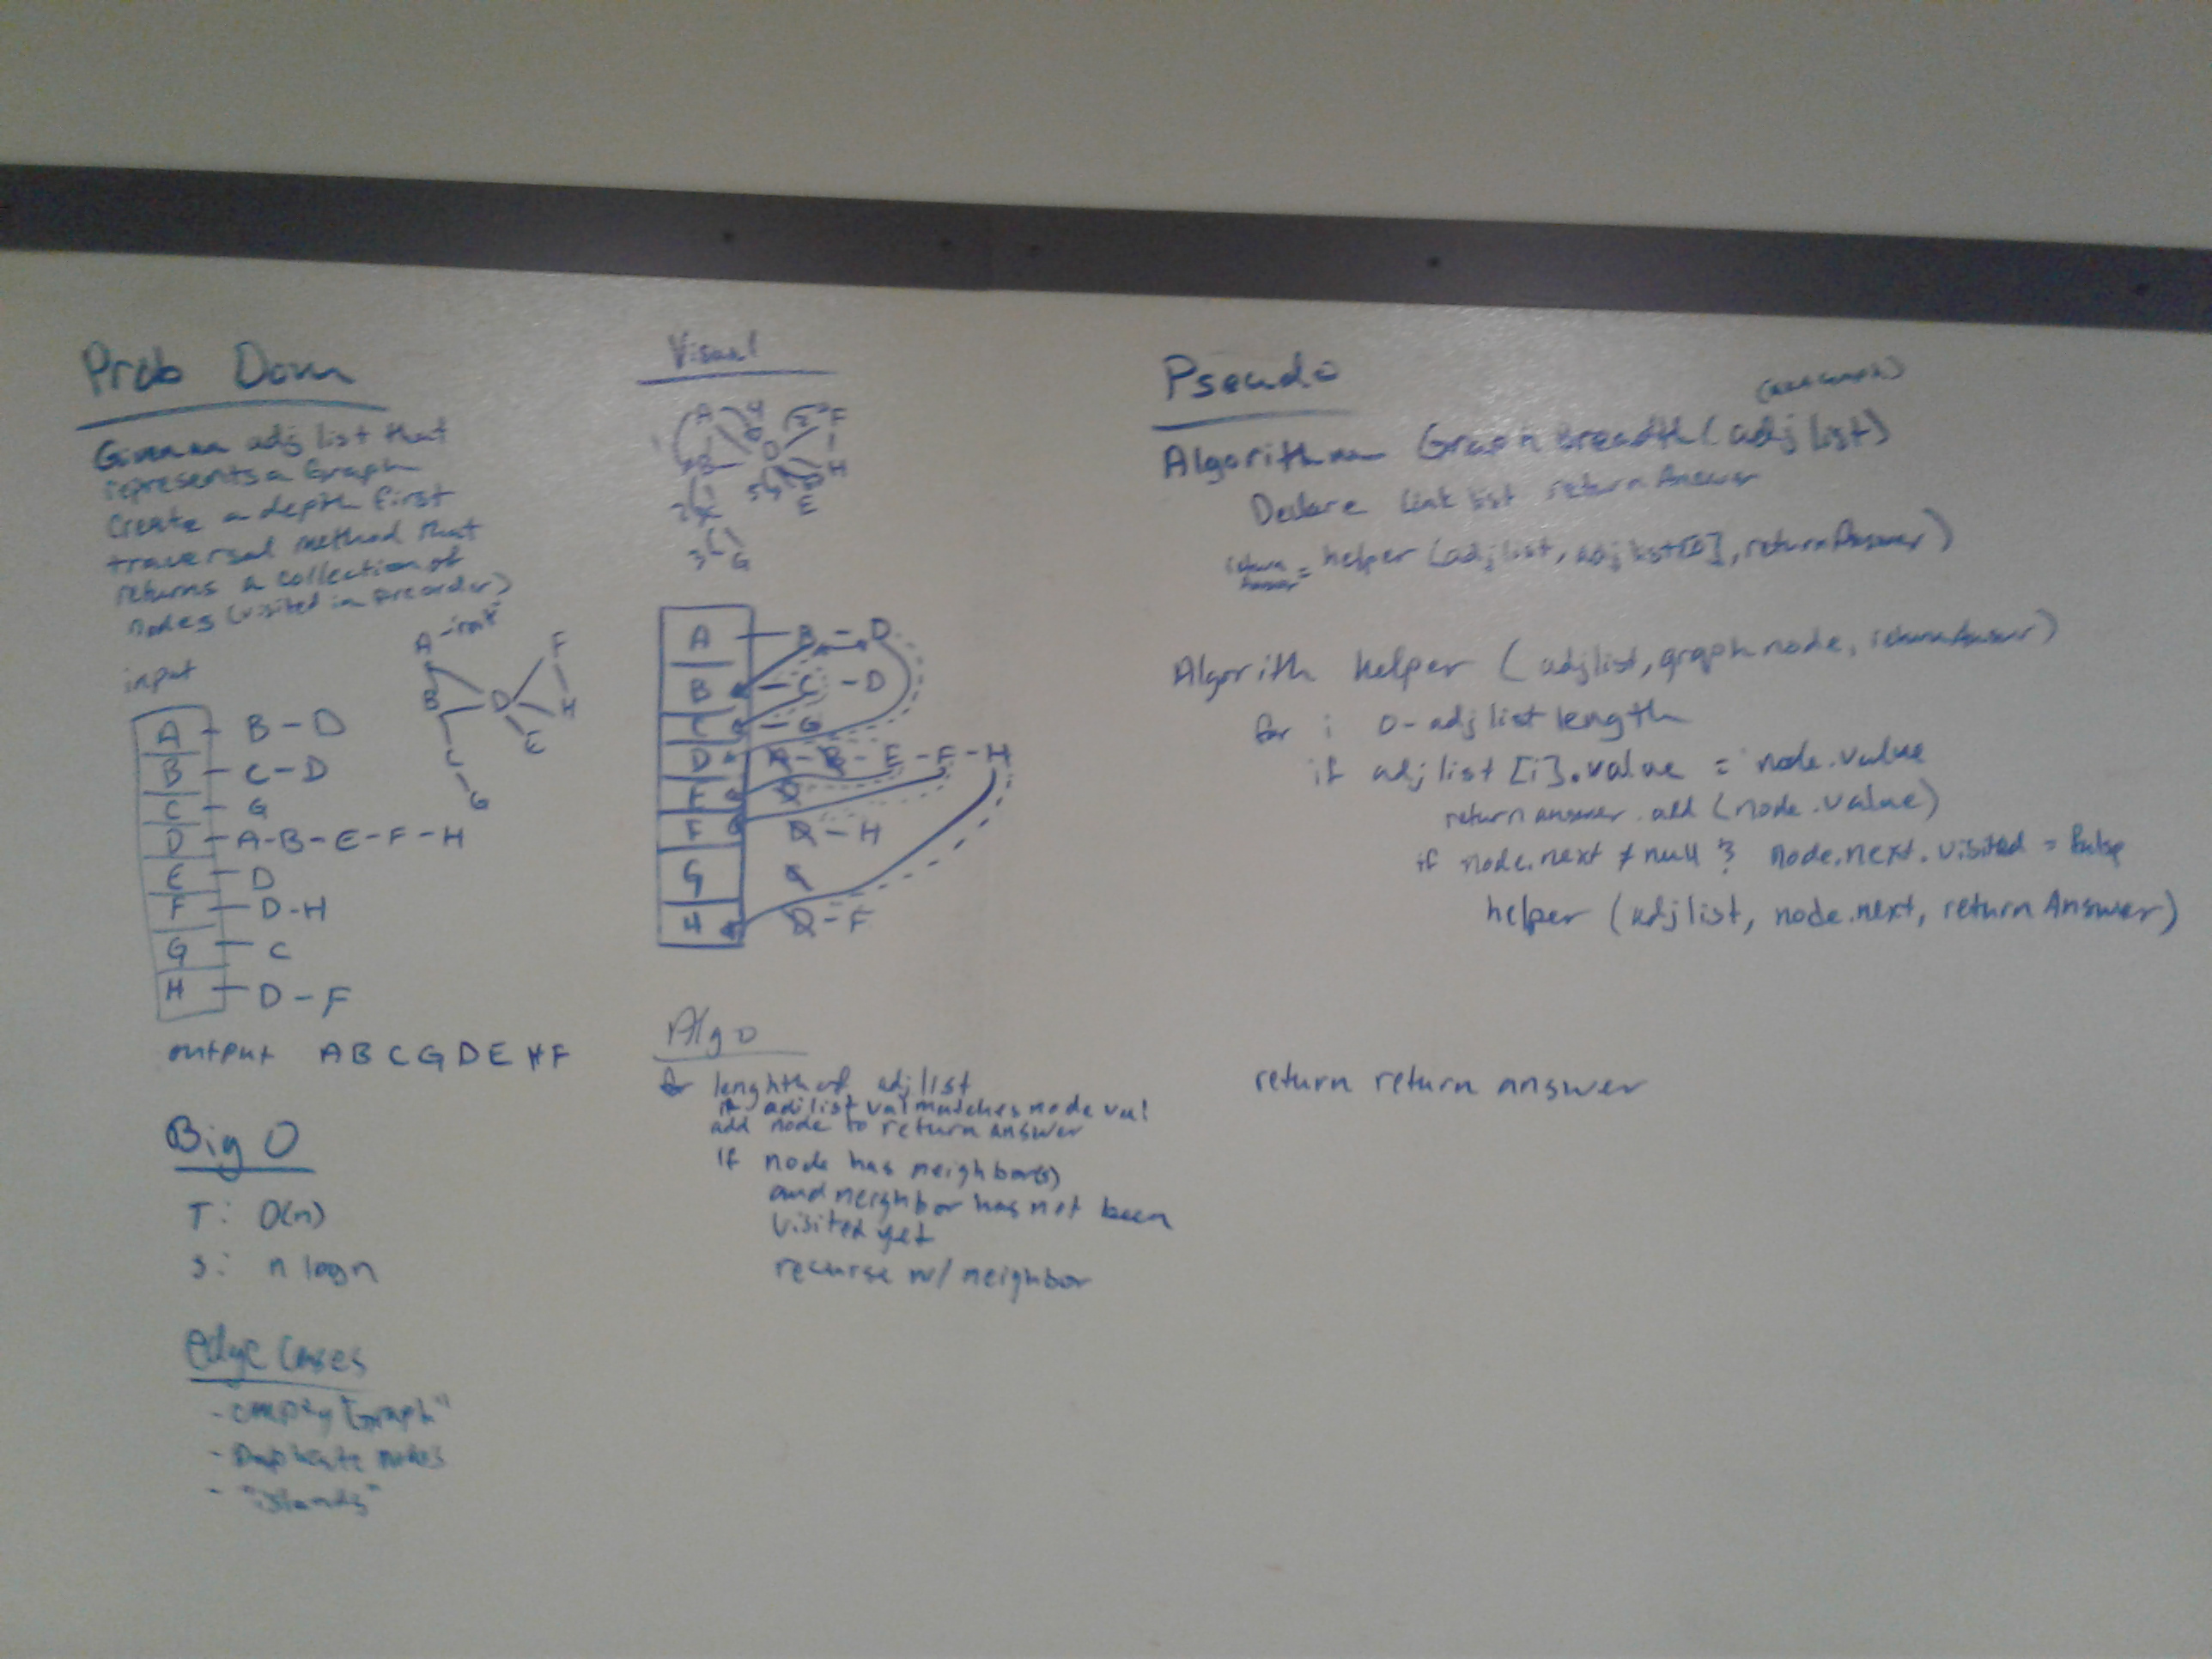 Prob Dom
Given an adj list that
represents a Graph
Create a depth first
traversal method that
returns a collection of
nodes (visited in pre order)
input
A - B - D
B - C - D
C - G
D - A - B - E - F - H
E - D
F - D - H
G - C
H - D - F
A - "root"
F
B
D
H
E
C
G
output A B C G D E H F
Big O
T: O(n)
S: n log n
edge cases
- empty "Graph"
- Duplicate nodes
- "islands"
Visual
A 4 F
B D H
E
3 G
A - B - D
B - C - D
C - G
D A - B - E - F - H
F D - H
G
H D - F
Algo
for lenghth of adj list
if adj list val matches node val
add node to return answer
If node has neighbor(s)
and neighbor has not been
visited yet
recurse w/ neighbor
Pseudo
Algorithm Graph breadth (adj list)
Declare link list return Answer
return Answer = helper (adj list, adj list[0], return Answer)
Algorith helper (adj list, graph node, return Answer)
for i 0 - adj list length
if adj list [i].value = node.value
return answer.add (node.value)
if node.next ≠ null & node.next.visited = false
helper (adj list, node.next, return Answer)
return return answer